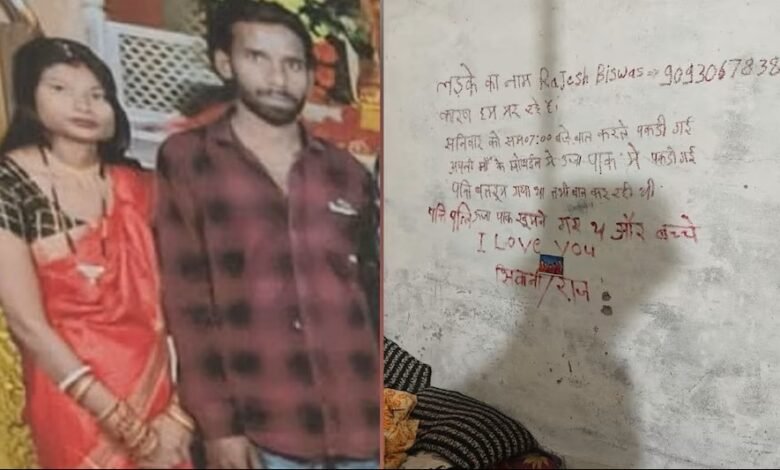 लड़के का नाम Rajesh Biswas => 9093067838
कारण हम मर रहे है।
सनिवार को सम 07:00 बजे बात करते पकडी गई
अपनी माँ के मोबाईल से ऊर्जा पाक मे पकडी गई
पत्ति बतरूम गया था तभी बात कर रही थी
पत्ति पत्नि ऊर्जा पाक घुमने गए थे और बच्चे
I Love you
शिवानी/राज